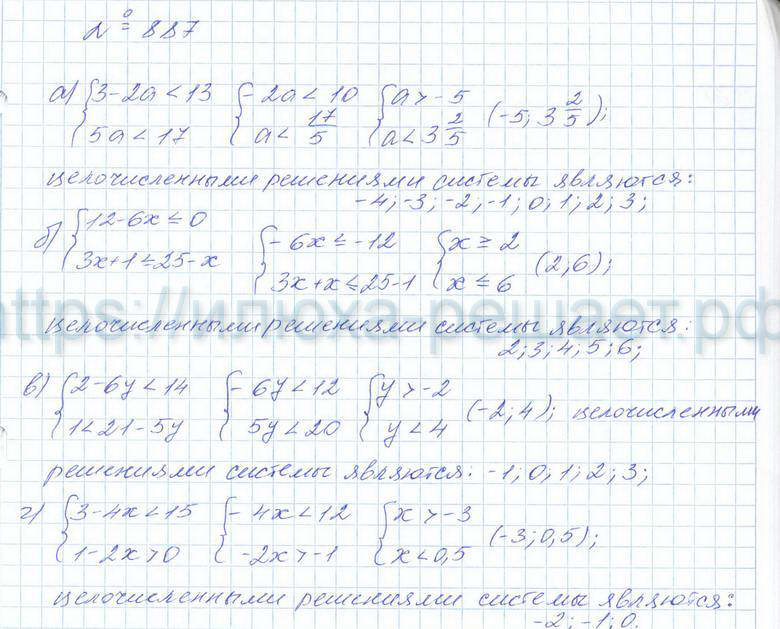 № 887
а) { 3-2a < 13 { -2a < 10 { a > -5
5a < 17 a < 17/5 a < 3 2/5 (-5; 3 2/5);
целочисленными решениями системы являются:
-4; -3; -2, -1; 0; 1; 2; 3;
б) { 12-6x ≤ 0 { -6x ≤ -12 { x ≥ 2
3x+1 ≤ 25-x 3x+x ≤ 25-1 x ≤ 6 (2; 6);
https://илюха-решает.рф
целочисленными решениями системы являются:
2; 3; 4; 5; 6;
в) { 2-6y < 14 { -6y < 12 { y > -2
1 < 21-5y 5y < 20 y < 4 (-2; 4); целочисленными
решениями системы являются: -1; 0; 1; 2; 3;
г) { 3-4x < 15 { -4x < 12 { x > -3
1-2x > 0 -2x > -1 x < 0,5 (-3; 0,5);
целочисленными решениями системы являются:
-2; -1; 0.